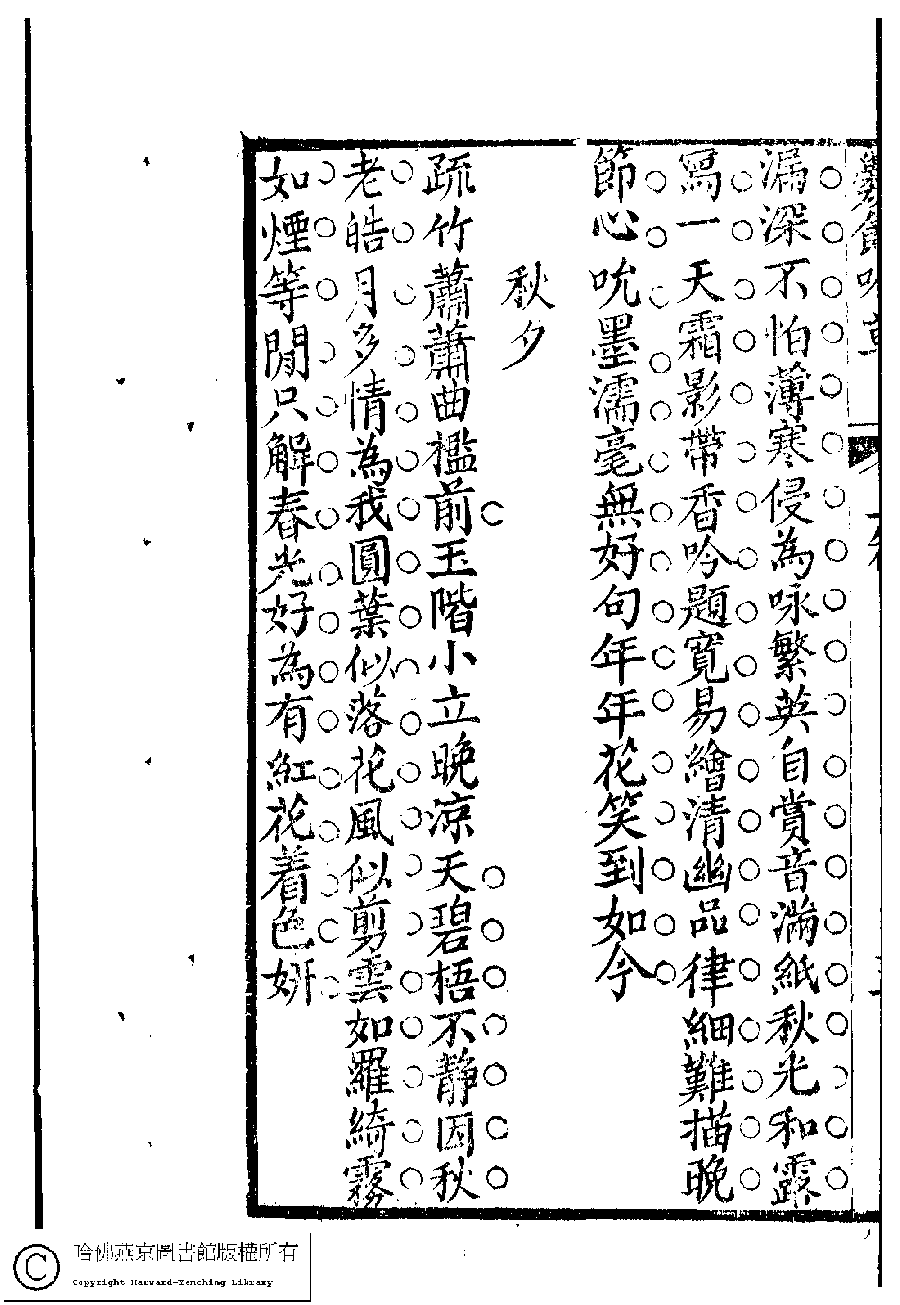 漏深不怕薄寒侵為咏繁英自賞音滿紙秋光和露
寫一天霜影帶香吟題寬易繪清幽品律細難描晚
節心吮墨濡毫無好句年年花笑到如今
秋夕
疏竹蕭蕭曲檻前玉階小立晚涼天碧梧不靜因秋
老皓月多情為我圓葉似落花風似剪雲如羅綺霧
如煙等閒只解春光好為有紅花着色妍
哈佛燕京圖書館版權所有
Copyright Harvard-Yenching Library